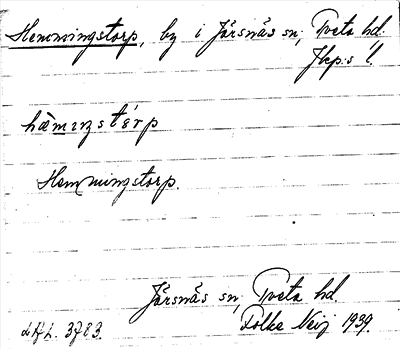 Hemmingstorp, by i Järsnäs sn, Tveta hd.
Jkp:s l.
hæ̀mıŋstɛ́rp
Hemmingstorp.
Järsnäs sn, Tveta hd.
3783. Folke Neij 1939.